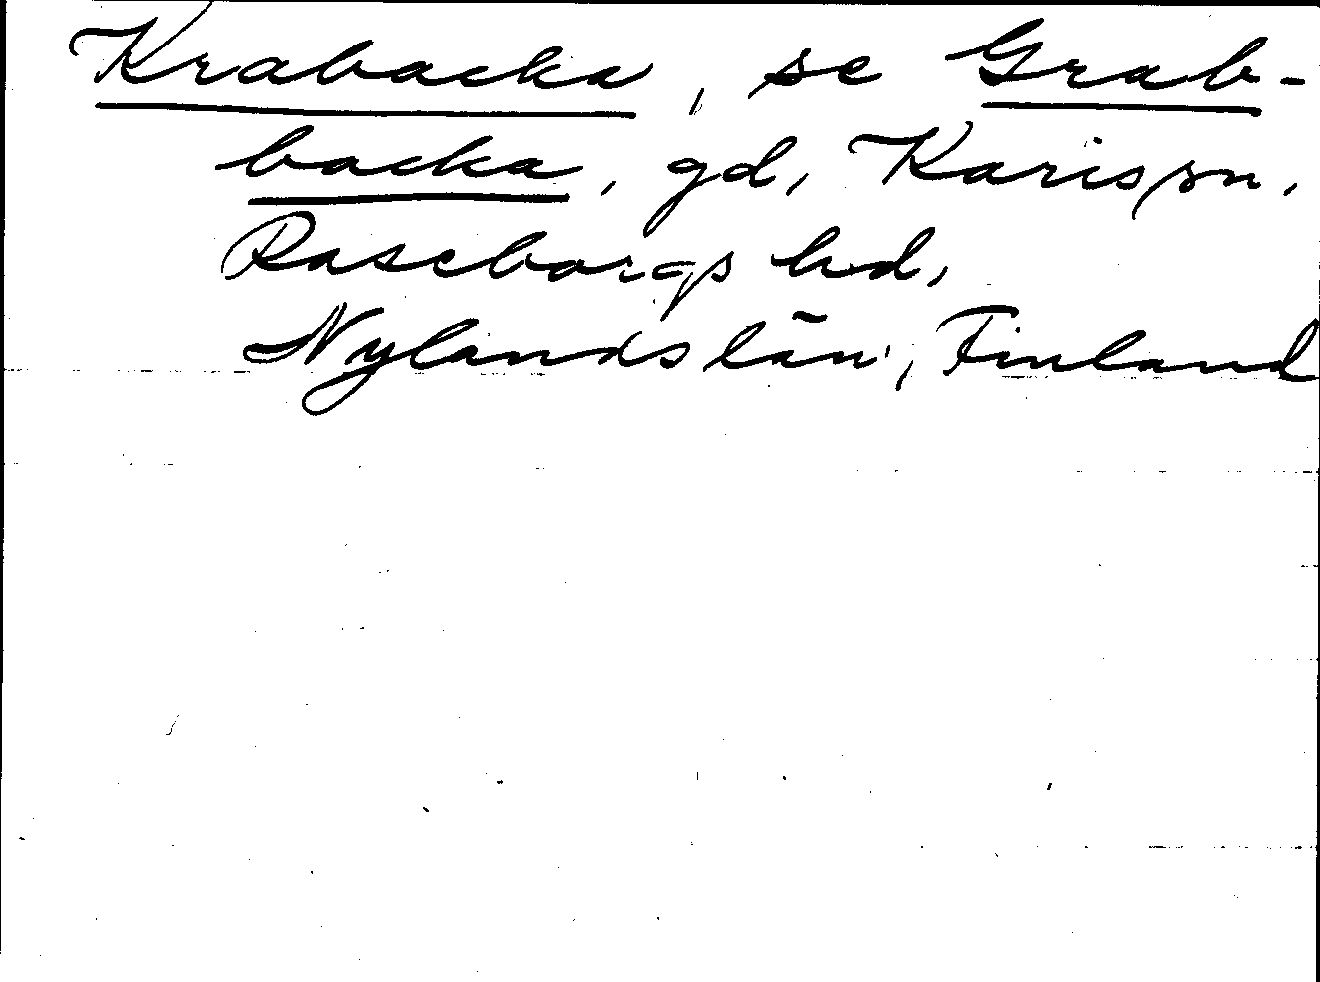 Krabacka, se Grab-
backa, gd, Karis sn,
Raseborgs hd,
Nylands län, Finland